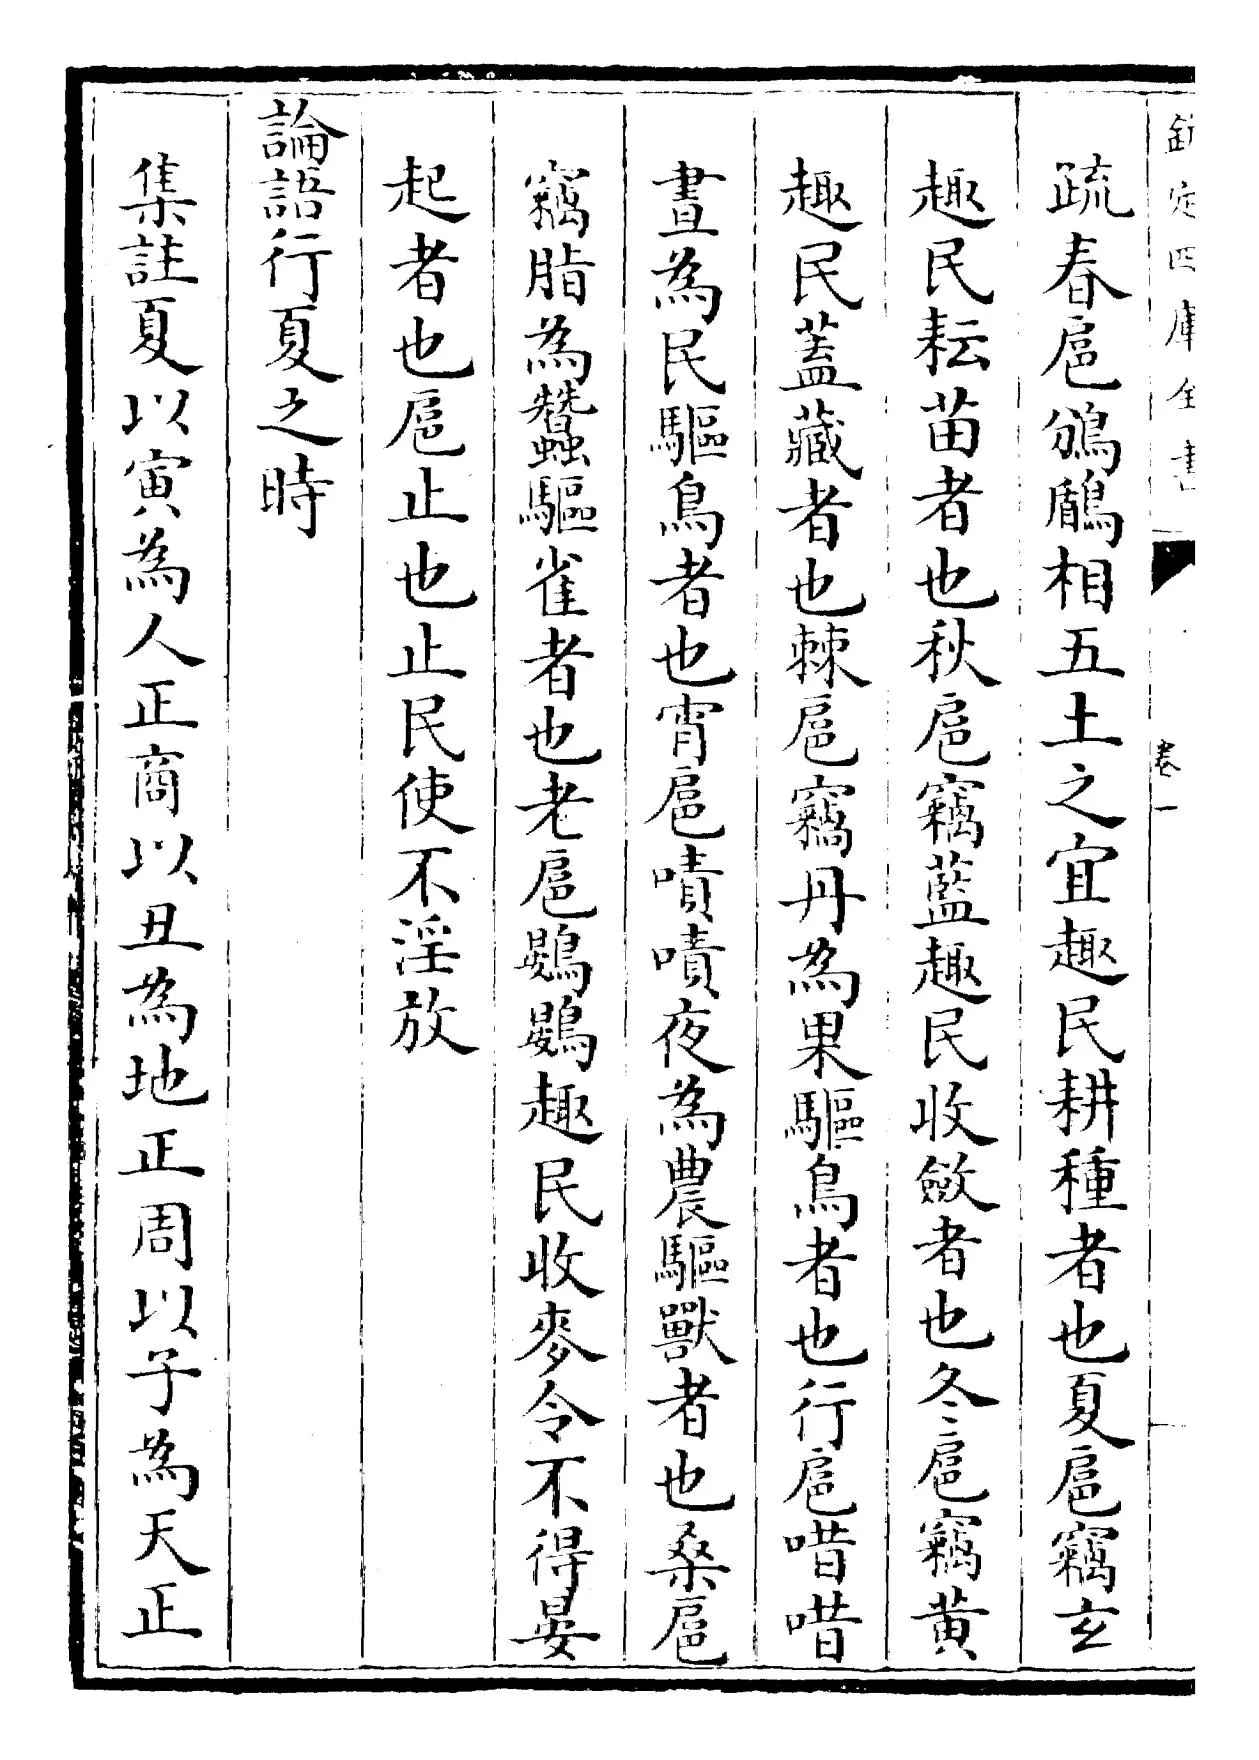 欽定四庫全書
卷一
疏春扈鳻鶞相五土之宜趣民耕種者也夏扈竊玄
趣民耘苗者也秋扈竊藍趣民收斂者也冬扈竊黄
趣民蓋藏者也棘扈竊丹為果驅鳥者也行扈唶唶
晝為民驅鳥者也宵扈嘖嘖夜為農驅獸者也桑扈
竊脂為蠶驅雀者也老扈鷃鷃趣民收麥令不得晏
起者也扈止也止民使不淫放
論語行夏之時
集註夏以寅為人正商以丑為地正周以子為天正